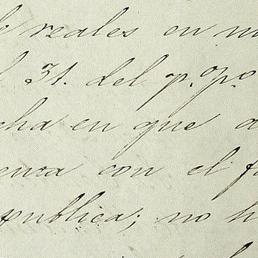 e reales en m
l 31. del p.º p.º
cha en que a
enza con el f
publica; no h